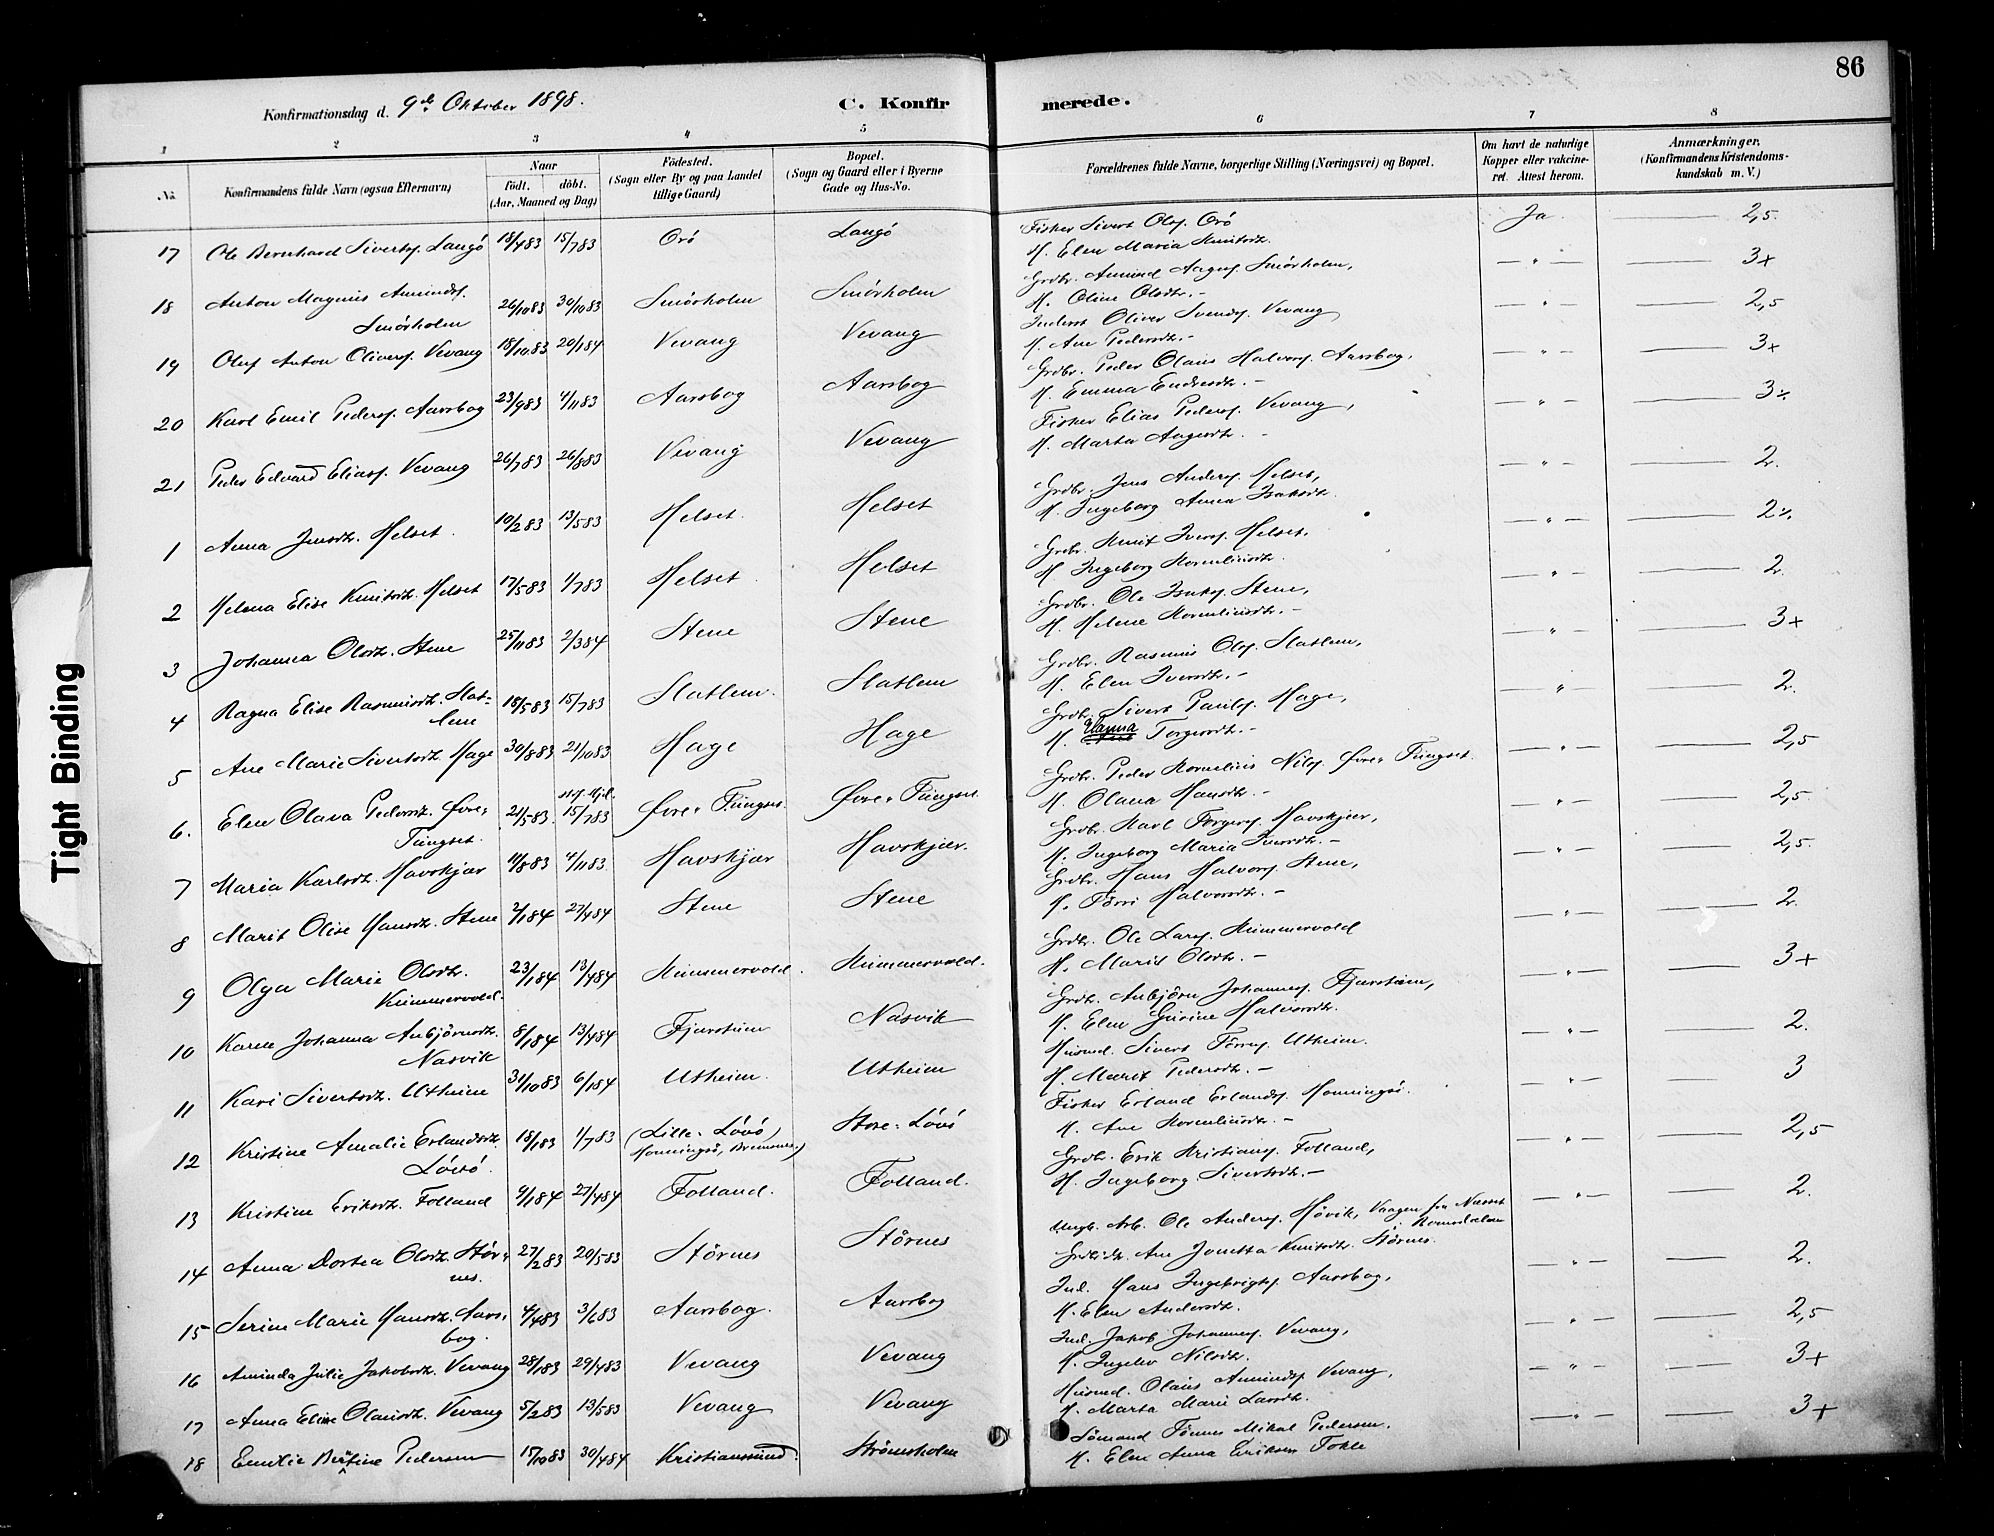 86
Konfirmationsdag d. 9de Oktober 1898. C. Konfirmerede.
1 2 3 4 5 6 7 8
No. Konfirmandens fulde Navn (ogsaa Efternavn) Naar født. døbt. (Aar, Maaned og Dag) Fødested. (Sogn eller By og paa Landet tillige Gaard) Bopæl. (Sogn og Gaard eller i Byerne Gade og Hus-No. Forældrenes fulde Navne, borgerlige Stilling (Næringsvei) og Bopæl. Om havt de naturlige Kopper eller vakcineret. Attest herom. Anmærkninger. (Konfirmandens Kristendomskundskab m. V.)
17 Ole Bernhard Sivertsf. Langö 18/4 83 15/7 83 Orö Langö Fisker Sivert Olsf. Orö Ja — 2,5
H. Elen Maria Knutsdtr.
18 Anton Magnus Amundsf. Smörholm 26/10 83 30/10 83 Smörholm Smörholm Grdbr. Amund Aagesf. Smörholm, — " — 3+
H. Oline Olsdtr. —
19 Oluf Anton Oliversf. Vevang 18/10 83 20/1 84 Vevang Vevang Inderst Oliver Svendsf. Vevang — " — 2,5
H. Ane Pedersdtr. —
20 Karl Emil Pedersf. Aarsbog 23/9 83 4/11 83 Aarsbog Aarsbog Grdbr. Peder Olaus Halvorsf. Aarsbog, — " — 3+
H. Emma Endresdtr. —
21 Peder Edvard Eliasf. Vevang 26/7 83 26/8 83 Vevang Vevang Fisker Elias Pedersf. Vevang, — " — 3%
H. Marta Aagesdtr. —
1 Anna Jensdtr. Helset 10/2 83 13/5 83 Helset Helset Grdbr. Jens Andersf. Helset, — " — 2.
H. Ingeborg Anna Isaksdtr.
2 Helena Elise Knutsdtr. Helset 17/5 83 1/7 83 Helset Helset Grdbr. Knut Iversf. Helset. — " — 2%
H. Ingeborg Korneliusdtr.
3 Johanna Olsdtr. Stene 25/11 83 2/3 84 Stene Stene Grdbr. Ole Isaksf. Stene, — " — 2.
H. Helene Korneliusdtr. —
4 Ragna Elise Rasmusdtr. Slatlem 18/5 83 15/7 83 Slatlem. Slatlem Grdbr. Rasmus Olsf. Slatlem, — " — 3+
H. Elen Iversdtr. —
5 Ane Marie Sivertsdtr. Hage 30/8 83 21/10 83 Hage Hage Grdbr. Sivert Paulsf. Hage, — " — 2.
H. Hanna Torgersdtr. —
6. Elen Olava Pedersdtr. Øvre-Tungset. 21/5 83. 15/7 83 Øvre-Tungset. Øvre-Tungset. Grdbr. Peder Kornelius Nilsf. Øvre-Tungset. — " — 2,5
H. Olana Hansdtr. —
7 Maria Karlsdtr. Havskjær 11/8 83 4/11 83. Havskjær Havskjær. Grdbr. Karl Torgersf. Havskjær, — " — 2,5.
H. Ingeborg Maria Iversdtr. —
8 Marit Olise Hansdtr. Stene 2/1 84 27/4 84 Stene Stene Grdbr. Hans Halvorsf. Stene, — " — 2,5.
H. Törri Halvorsdtr. —
9 Olga Marie Olsdtr. Kummervold. 23/1 84 13/4 84 Kummervold. Kummervold. Grdbr. Ole Larsf. Kummervold — " — 2.
H. Marit Olsdtr. —
10 Karen Johanna Anbjörnsdtr. Nasvik 8/1 84 13/4 84 Fjærstuen Nasvik Grdbr. Anbjörn Johannesf. Fjærstuen, — " — 3+
H. Elen Gurine Halvorsdtr.
11 Kari Sivertsdtr. Utheim 31/10 83 6/1 84 Utheim. Utheim Husmd. Sivert Törresf. Utheim. — " — 2.
H. Marit Pedersdtr. —
12 Kristine Amalie Erlandsdtr. Lövö. 18/1 83 1/7 83 (Lille-Lövö) Honningsö, Bremsnes) Store-Lövö Fisker Erland Erlandsf. Honningsö. — " — 3
H. Ane Korneliusdtr. —
13 Kristine Eriksdtr. Folland 9/1 84 27/4 84 Folland. Folland. Grdbr. Erik Kristiansf. Folland, — " — 2,5
H. Ingeborg Sivertsdtr. —
14 Anna Dortea Olsdtr. Störnes. 27/2 83 20/5 83 Störnes Störnes Ungk. Arb. Ole Andersf. Hövik, Vaagen fra Næsset Romsdalen — " — 2.
Grdbrdtr. Ane Jonetta Knutsdtr. Störnes.
15 Serine Marie Hansdtr. Aarsbog. 4/4 83 3/6 83 Aarsbog. Aarsbog Ind. Hans Ingebrigtsf. Aarsbog, — " — 2.
H. Elen Andersdtr.
16 Aminda Julie Jakobsdtr. Vevang 28/1 83 29/4 83 Vevang Vevang Ind. Jakob Johannesf. Vevang, — " — 2,5
H. Ingelev Nilsdtr.
17 Anna Eline Olausdtr. Vevang 5/2 83 13/5 83 Vevang Vevang Husmd. Olaus Amundsf. Vevang, — " — 3+
H. Marta Marie Larsdtr.
18 Emilie Bertine Pedersen 15/10 83 30/4 84 Kristianssund. Strömsholm Sömand Tönnes Mikal Pedersen. — " — 3+
H. Elen Anna Eriksen Tokle
Tight Binding